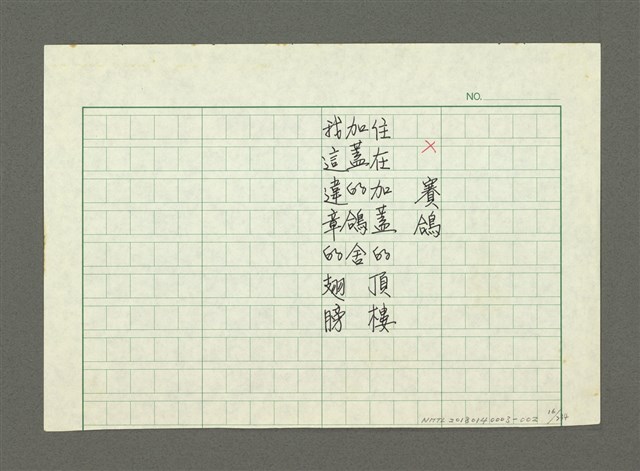 NO.
×
賽鴿
住在加蓋的頂樓
加蓋的鴿舍
我這違章的翅膀
NMTL 20180140003-002
16/